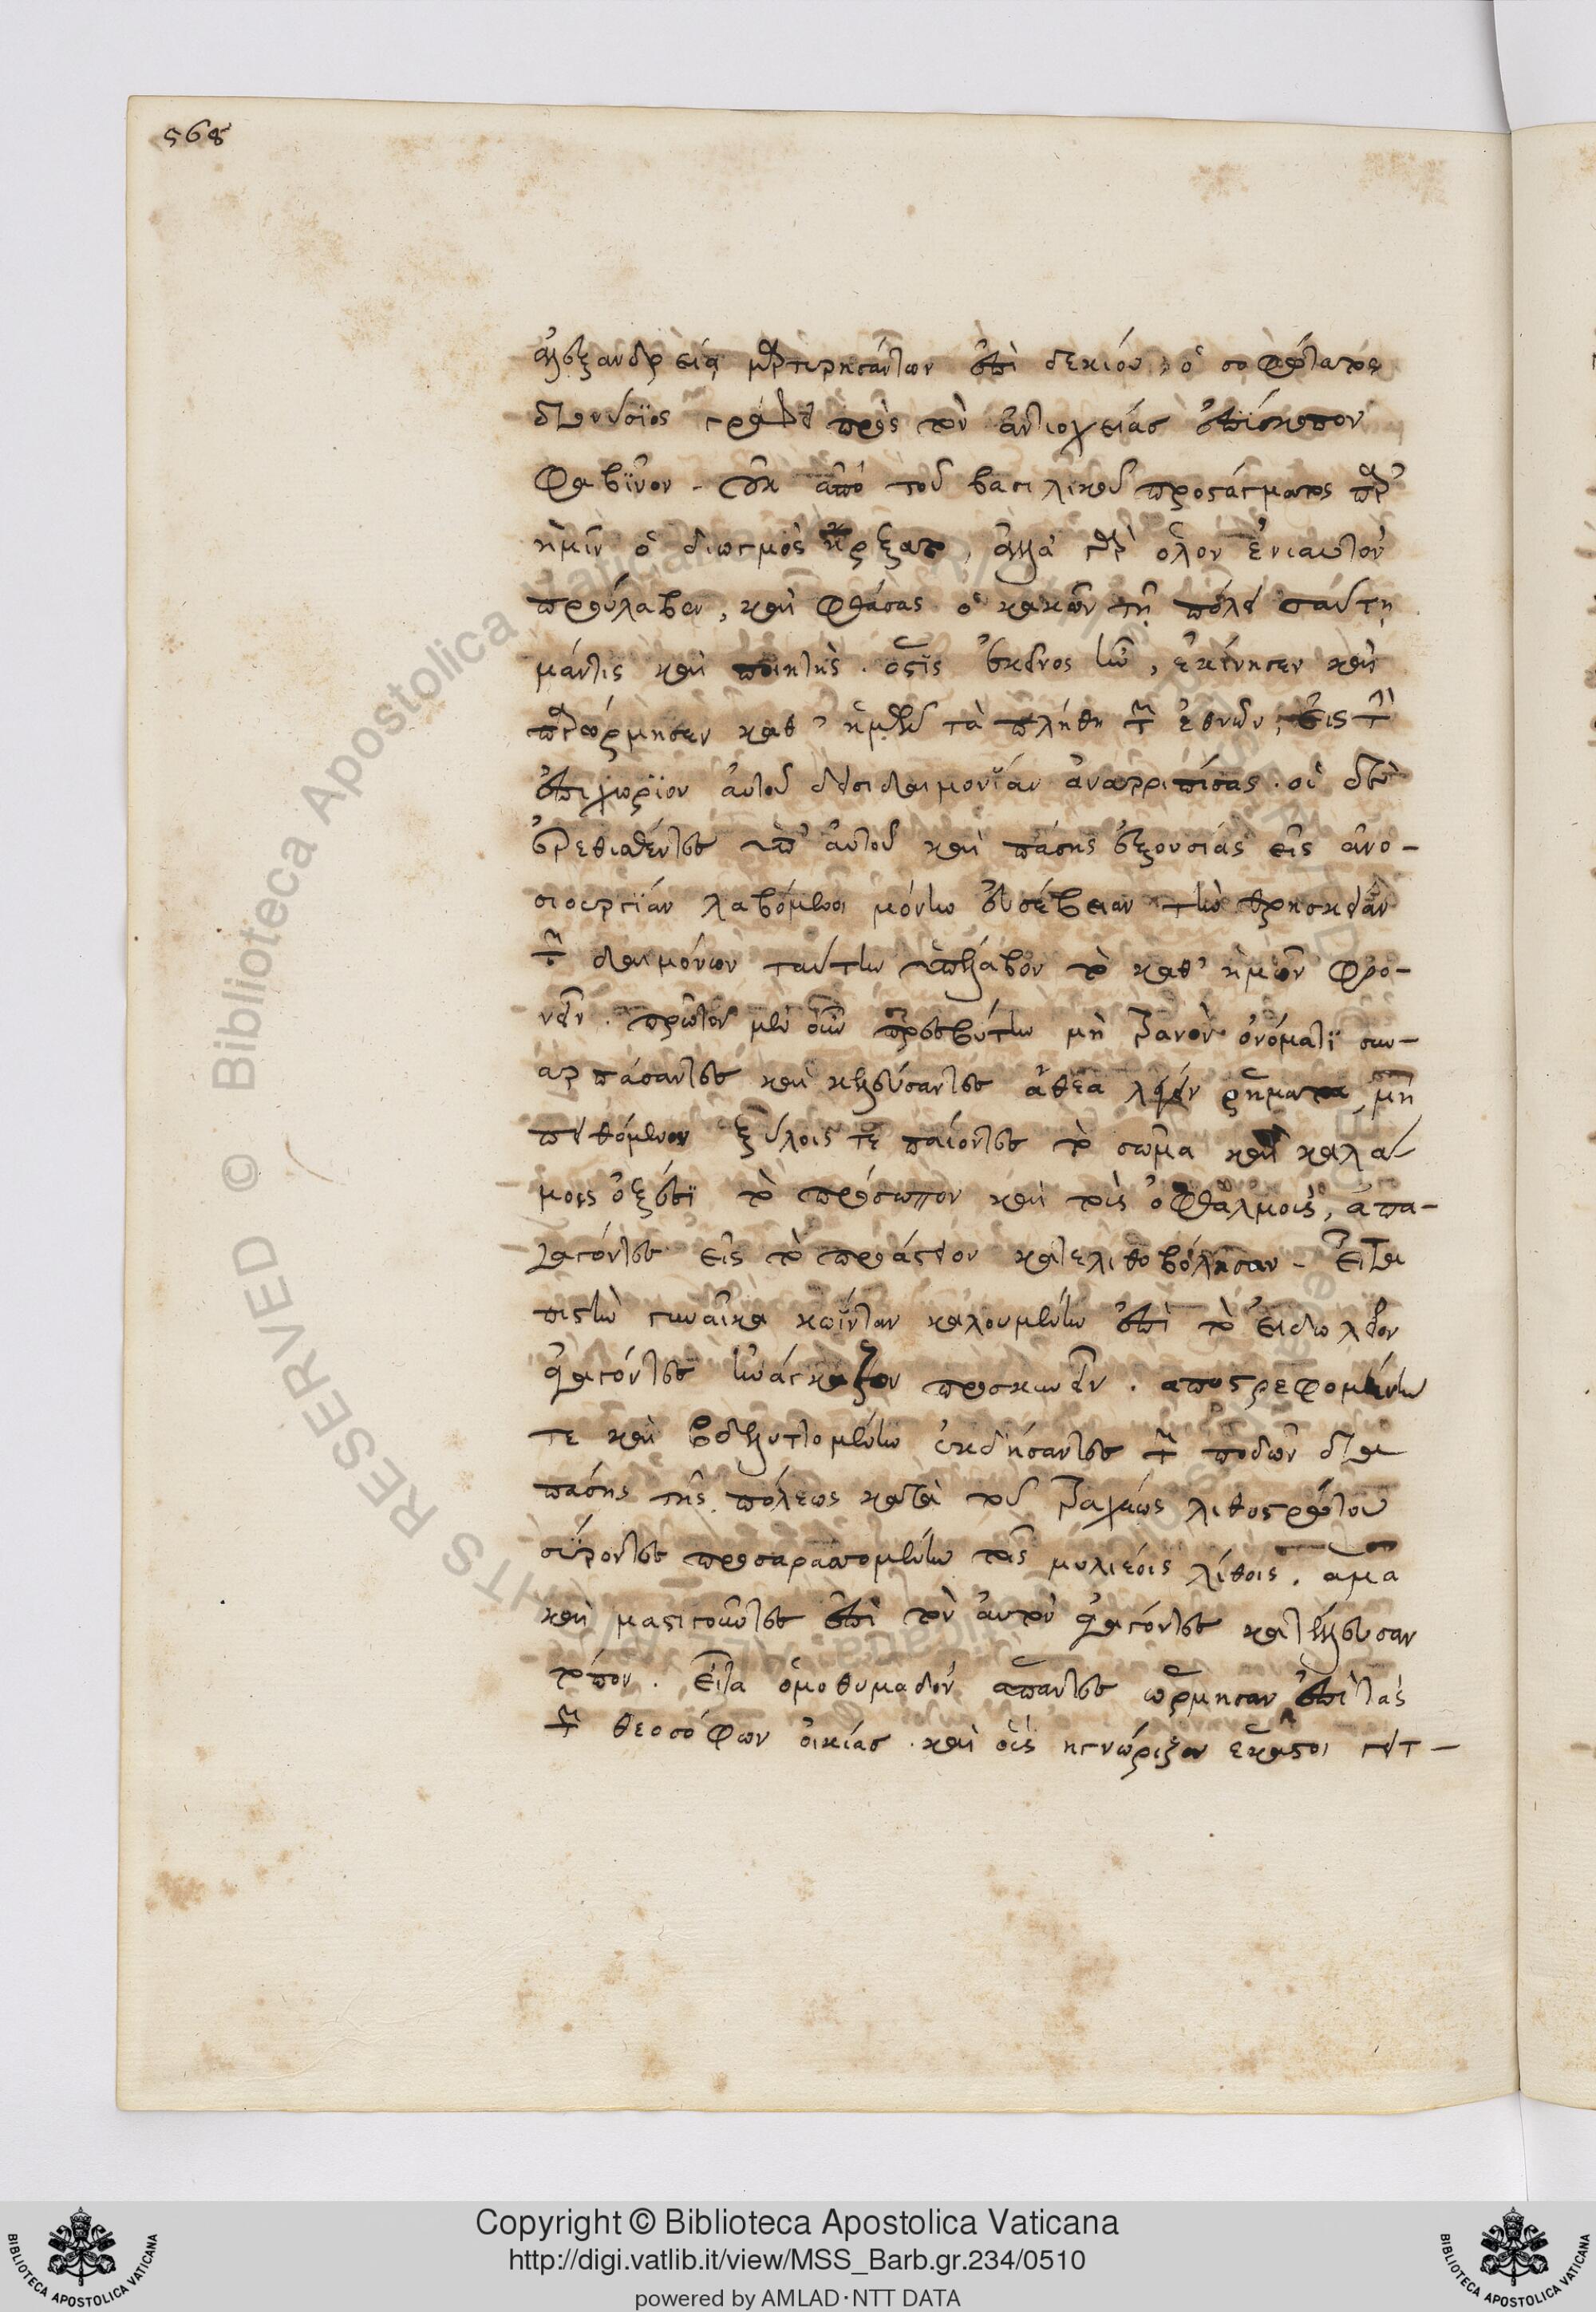 568
ἀλεξανδρεία μαρτυρησάντων ἐπὶ δεκίου, ὁ σοφώτατος
διονύσιος γράφει πρὸς τὸν ἀντιοχείας ἐπίσκοπον
Φαβῖνον. οὐκ ἀπὸ τοῦ βασιλικοῦ προστάγματος παρ'
ἡμῖν ὁ διωγμὸς ἤρξατο, ἀλλὰ γὰρ ὅλον ἐνιαυτὸν
προύλαβεν, καὶ φθάσας ὁ κακῶν τῇ πόλει ταύτῃ
μάντις καὶ ποιητὴς. ὅστις ἐκεῖνος ἦν, ἐκίνησεν καὶ
παρώρμησεν καθ' ἡμῶν τὰ πλήθη τῶν ἐθνῶν, εἰς τὴν
ἐπιχώριον αὐτοῦ δεισιδαιμονίαν ἀναρριπίσας. οἱ δὲ
ἐρεθισθέντες ὑπ' αὐτοῦ καὶ πάσης ἐξουσίας εἰς ἀνο-
σιουργίαν λαβόμενοι μόνην εὐσέβειαν τὴν θρησκείαν
τῶν δαιμόνων ταύτην ὑπέλαβον τὸ καθ' ἡμῶν φρο-
νεῖν. πρῶτον μὲν οὖν πρεσβύτην μητρανὸν ὀνόματι συν-
αρπάσαντες καὶ κελεύσαντες ἄθεα λέγειν ῥήματα, μὴ
πειθόμενον ξύλοις τε παίοντες τὸ σῶμα καὶ καλά
μοις ὀξέσι τὸ πρόσωπον καὶ τοὺς ὀφθαλμοὺς, ἀπα-
γαγόντες εἰς τὸ προάστειον κατελιθοβόλησαν. Εἶτα
πιστὴν γυναῖκα κοΐνταν καλουμένην ἐπὶ τὸ εἰδωλεῖον
ἀγαγόντες ἠνάγκαζον προσκυνεῖν. ἀποστρεφομένην
τε καὶ βδελυττομένην ἐκδήσαντες τῶν ποδῶν διὰ
πάσης τῆς πόλεως κατὰ τοῦ τραχέως λιθοστρώτου
σύροντες προσαρασσομένην τοῖς μυλιαίοις λίθοις. ἅμα
καὶ μαστιγοῦντες ἐπὶ τὸν αὐτὸν ἀγαγόντες κατέλευσαν
τόπον. Εἶτα ὁμοθυμαδὸν ἅπαντες ὥρμησαν ἐπὶ τὰς
τῶν θεοσόφων οἰκίας. καὶ οὓς ἐγνώριζον ἕκαστοι γειτ-
Copyright © Biblioteca Apostolica Vaticana
http://digi.vatlib.it/view/MSS_Barb.gr.234/0510
powered by AMLAD·NTT DATA